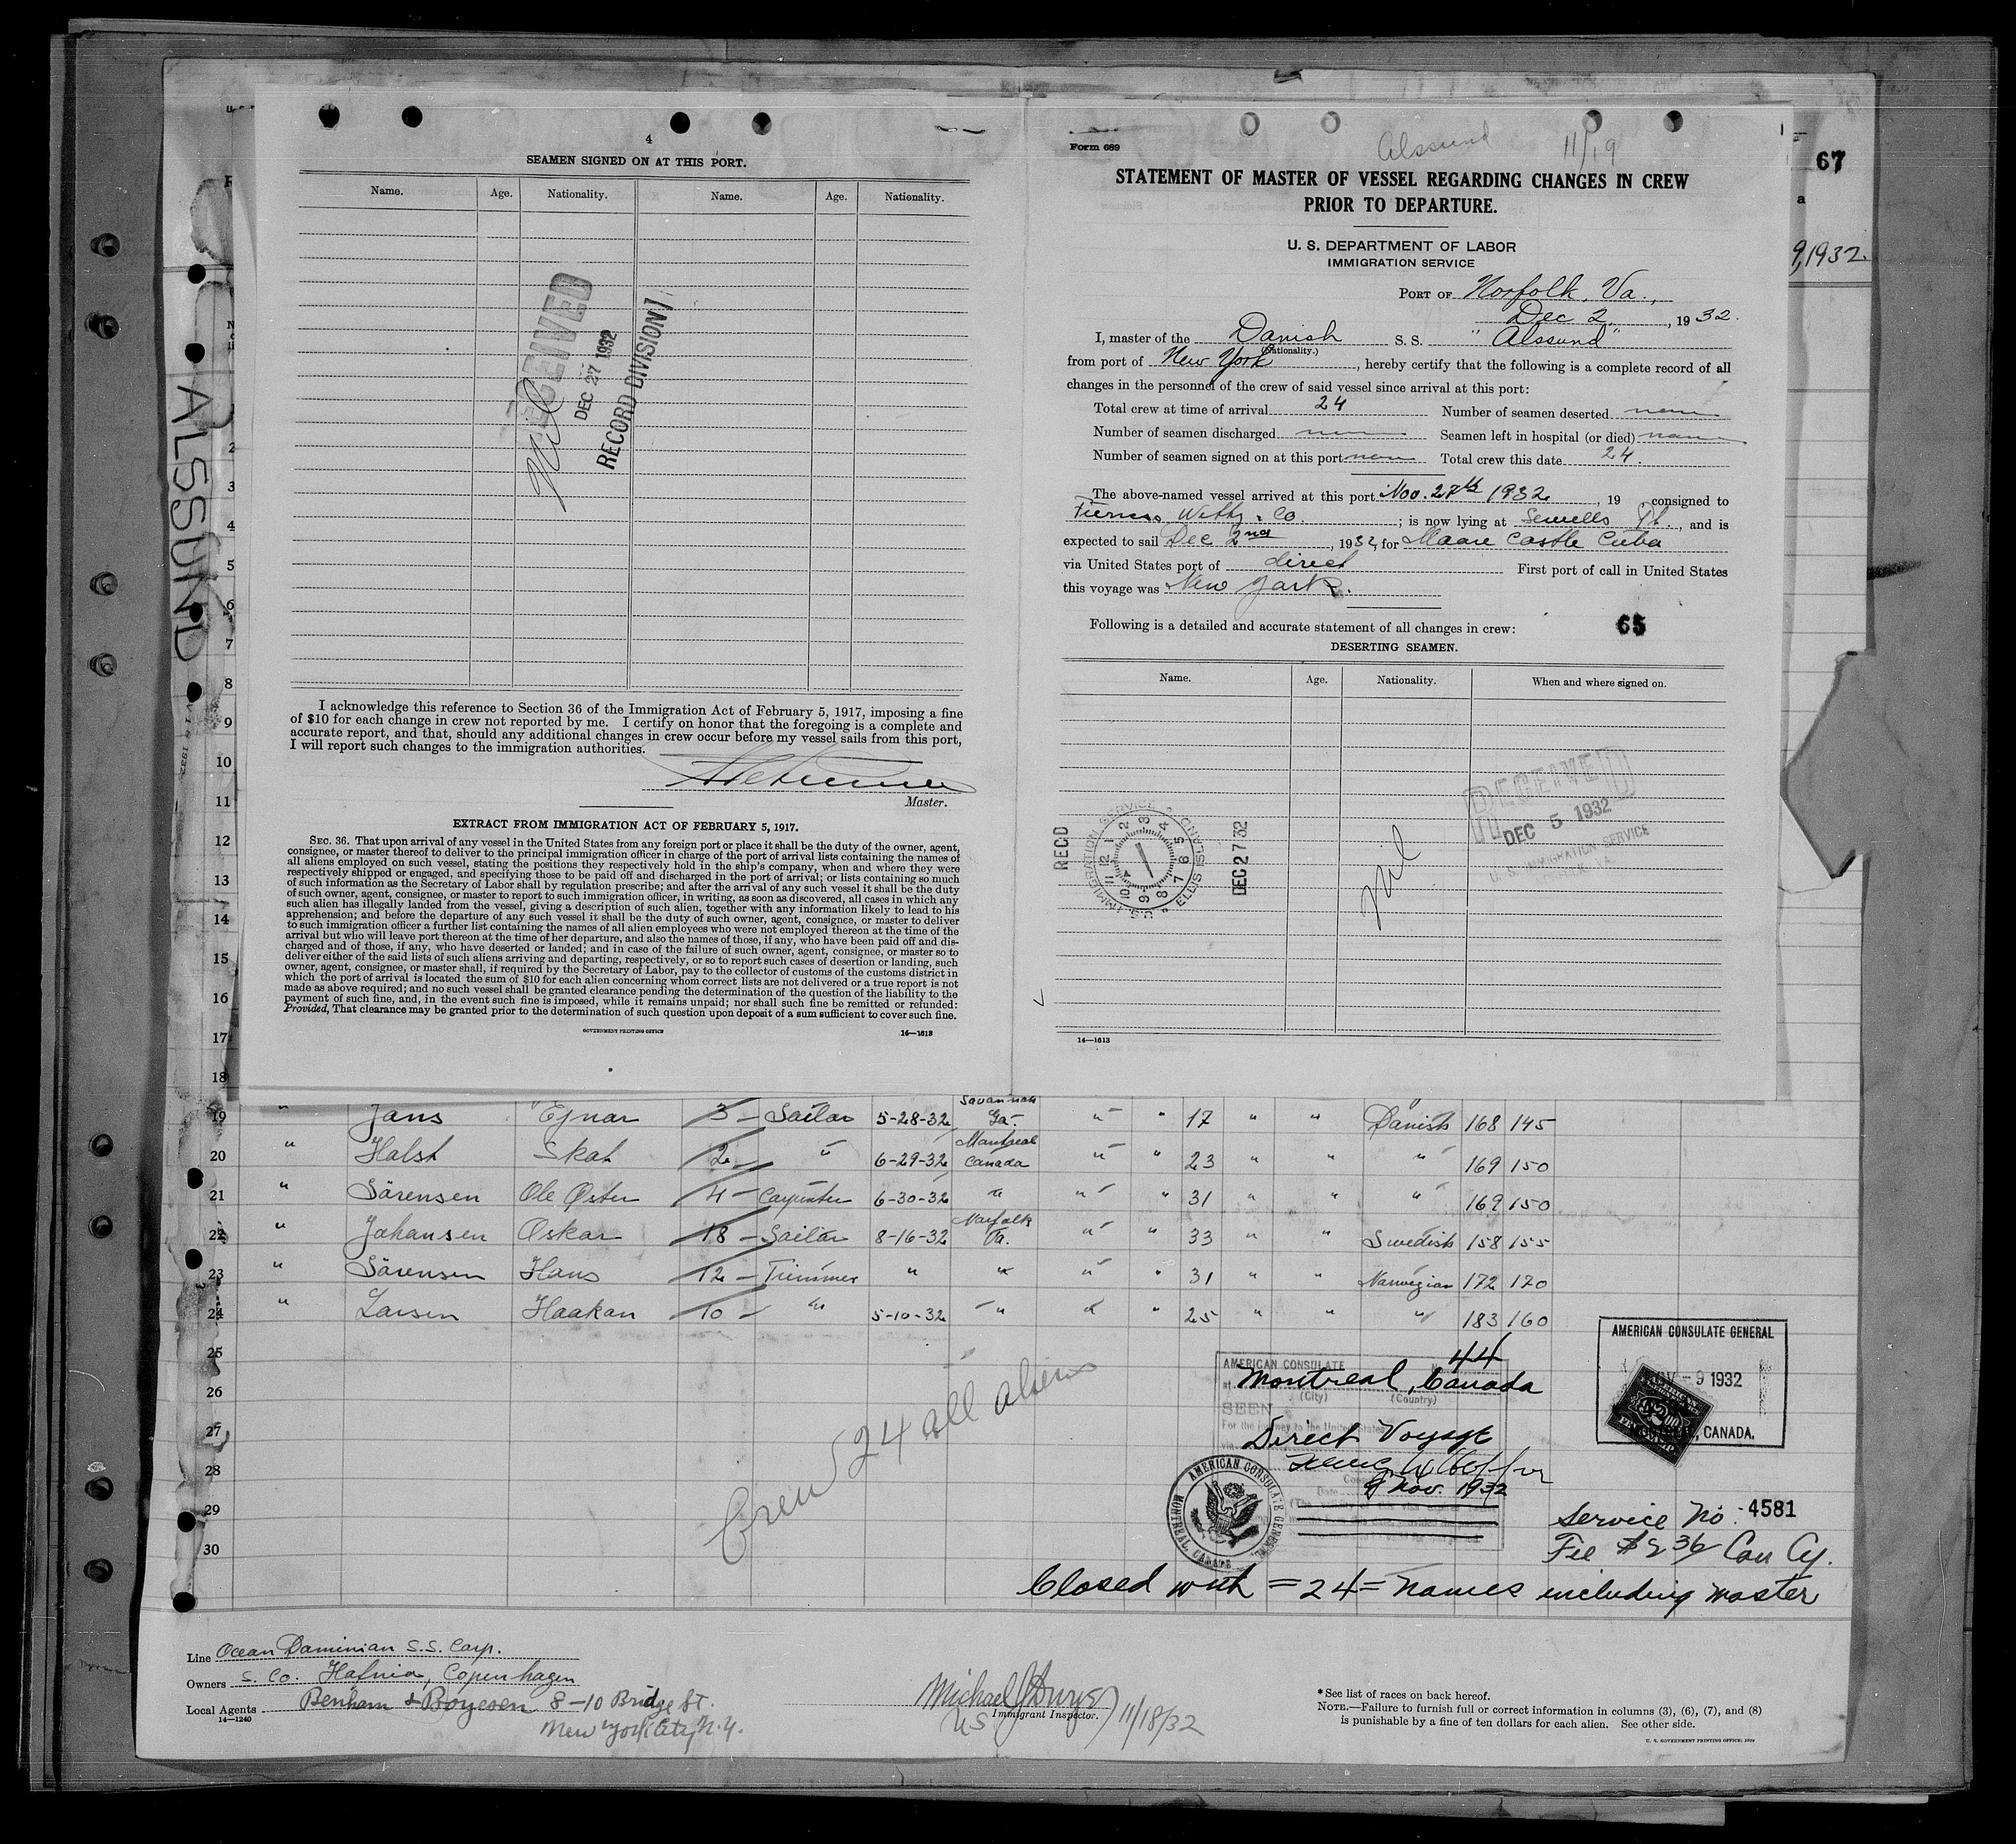 4
SEAMEN SIGNED ON AT THIS PORT.
Name. Age. Nationality. Name. Age. Nationality.
RECEIVED
DEC 27 1932
RECORD DIVISION
Nil
I acknowledge this reference to Section 36 of the Immigration Act of February 5, 1917, imposing a fine
of $10 for each change in crew not reported by me. I certify on honor that the foregoing is a complete and
accurate report, and that, should any additional changes in crew occur before my vessel sails from this port,
I will report such changes to the immigration authorities.
Master.
EXTRACT FROM IMMIGRATION ACT OF FEBRUARY 5, 1917.
SEC. 36. That upon arrival of any vessel in the United States from any foreign port or place it shall be the duty of the owner, agent,
consignee, or master thereof to deliver to the principal immigration officer in charge of the port of arrival lists containing the names of
all aliens employed on such vessel, stating the positions they respectively hold in the ship's company, when and where they were
respectively shipped or engaged, and specifying those to be paid off and discharged in the port of arrival; or lists containing so much
of such information as the Secretary of Labor shall by regulation prescribe; and after the arrival of any such vessel it shall be the duty
of such owner, agent, consignee, or master to report to such immigration officer, in writing, as soon as discovered, all cases in which any
such alien has illegally landed from the vessel, giving a description of such alien, together with any information likely to lead to his
apprehension; and before the departure of any such vessel it shall be the duty of such owner, agent, consignee, or master to deliver
to such immigration officer a further list containing the names of all alien employees who were not employed thereon at the time of the
arrival but who will leave port thereon at the time of her departure, and also the names of those, if any, who have been paid off and dis-
charged and of those, if any, who have deserted or landed; and in case of the failure of such owner, agent, consignee, or master so to
deliver either of the said lists of such aliens arriving and departing, respectively, or so to report such cases of desertion or landing, such
owner, agent, consignee, or master shall, if required by the Secretary of Labor, pay to the collector of customs of the customs district in
which the port of arrival is located the sum of $10 for each alien concerning whom correct lists are not delivered or a true report is not
made as above required; and no such vessel shall be granted clearance pending the determination of the question of the liability to the
payment of such fine, and, in the event such fine is imposed, while it remains unpaid; nor shall such fine be remitted or refunded:
Provided, That clearance may be granted prior to the determination of such question upon deposit of a sum sufficient to cover such fine.
GOVERNMENT PRINTING OFFICE 14—1613
Form 689
Alssund 11/19
STATEMENT OF MASTER OF VESSEL REGARDING CHANGES IN CREW
PRIOR TO DEPARTURE.
U. S. DEPARTMENT OF LABOR
IMMIGRATION SERVICE
PORT OF Norfolk, Va.,
Dec 2, 1932.
I, master of the Danish S. S. "Alssund"
(Nationality.)
from port of New York, hereby certify that the following is a complete record of all
changes in the personnel of the crew of said vessel since arrival at this port:
Total crew at time of arrival 24 Number of seamen deserted none
Number of seamen discharged none Seamen left in hospital (or died) none
Number of seamen signed on at this port none Total crew this date 24.
The above-named vessel arrived at this port Nov. 27th 1932, 19 , consigned to
Furness Withy & Co. ; is now lying at Sewells Pt., and is
expected to sail Dec 2nd, 1932, for Maare Castle Cuba
via United States port of direct First port of call in United States
this voyage was New York.
Following is a detailed and accurate statement of all changes in crew: 65
DESERTING SEAMEN.
Name. Age. Nationality. When and where signed on.
RECEIVED
DEC 5 1932
U. S. IMMIGRATION SERVICE
VA.
RECD
DEC 27 32
nil
14—1613
67
9, 1932
ALSSUND
2
3
4
5
6
7
8
9
10
11
12
13
14
15
16
17
18
19 " Jans Ejnar 3 Sailor 5-28-32 Savannah Ga. " " 17 " " Danish 168 145
20 " Halst Skat 2 " 6-29-32 Montreal Canada " " 23 " " " 169 150
21 " Sörensen Ole Øster 4 Carpenter 6-30-32 " " " 31 " " " 169 150
22 " Johansen Oskar 18 Sailor 8-16-32 Norfolk Va. " " 33 " " Swedish 158 155
23 " Sörensen Hans 12 Trimmer " " " " 31 " " Norwegian 172 170
24 " Larsen Haakan 10 " 5-10-32 " " " 25 " " " 183 160
25
26
27
28
29
30
Crew 24 all aliens
44
AMERICAN CONSULATE
Montreal, Canada
(City) (Country)
SEEN
For the journey to the United States
Direct Voyage
9 Nov. 1932
AMERICAN CONSULATE GENERAL
MONTREAL, CANADA
AMERICAN CONSULATE GENERAL
NOV - 9 1932
MONTREAL, CANADA.
Service No. 4581
Fee $2 36 Can Cy.
Closed with = 24 = names including master
Line Ocean Dominion S.S. Corp.
Owners S. Co. Hafnia, Copenhagen
Local Agents Benham & Boyesen 8-10 Bridge St.
14—1240
New York City N.Y.
Michael
US Immigrant Inspector. 11/18/32
* See list of races on back hereof.
NOTE.—Failure to furnish full or correct information in columns (3), (6), (7), and (8)
is punishable by a fine of ten dollars for each alien. See other side.